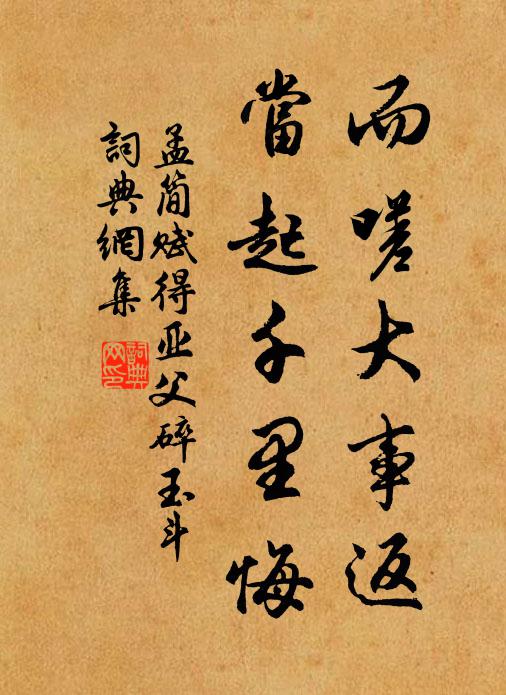 而嗟大事返
當起千里悔
孟简赋得亚父碎玉斗
詞典網集
詞典
网印